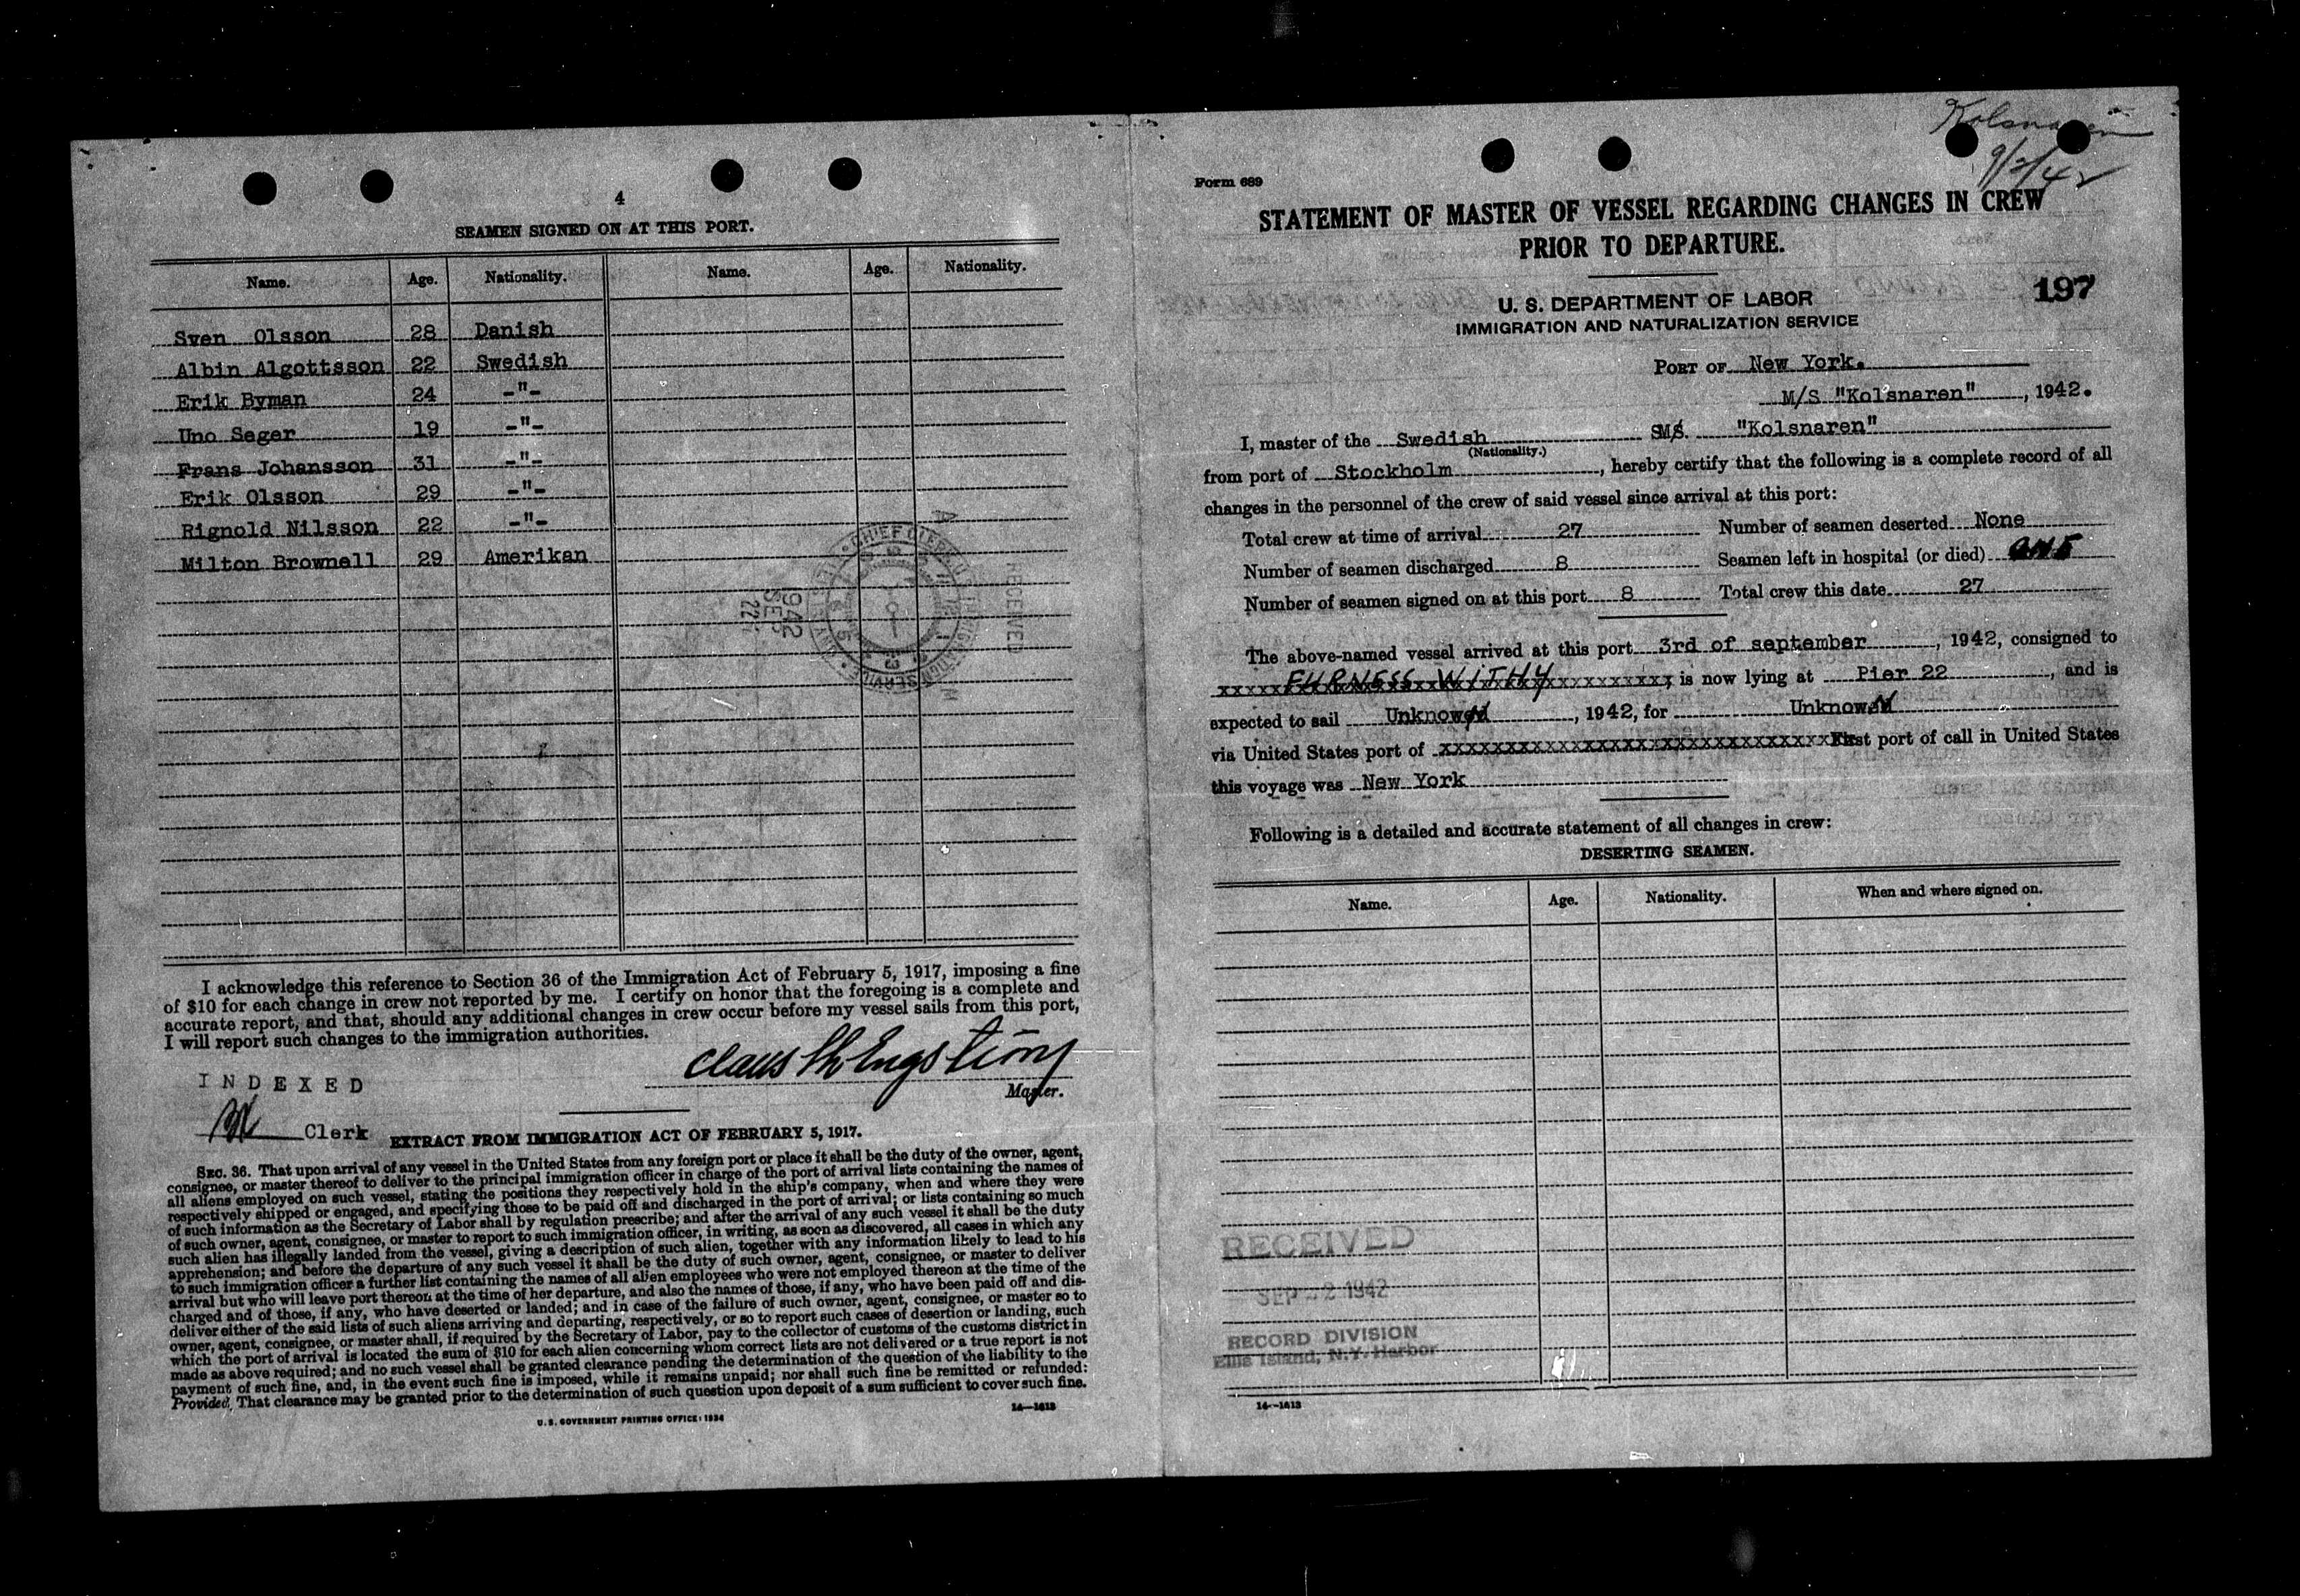 4
SEAMEN SIGNED ON AT THIS PORT.
Name. Age. Nationality. Name. Age. Nationality.
Sven Olsson 28 Danish
Albin Algottsson 22 Swedish
Erik Byman 24 -"-
Uno Seger 19 -"-
Frans Johansson 31 -"-
Erik Olsson 29 -"-
Rignold Nilsson 22 -"-
Milton Brownell 29 Amerikan
RECEIVED
1942
SEP
22
CHIEF CLERK
I acknowledge this reference to Section 36 of the Immigration Act of February 5, 1917, imposing a fine
of $10 for each change in crew not reported by me. I certify on honor that the foregoing is a complete and
accurate report, and that, should any additional changes in crew occur before my vessel sails from this port,
I will report such changes to the immigration authorities.
Claus Engström
Master.
INDEXED
Clerk
EXTRACT FROM IMMIGRATION ACT OF FEBRUARY 5, 1917.
SEC. 36. That upon arrival of any vessel in the United States from any foreign port or place it shall be the duty of the owner, agent,
consignee, or master thereof to deliver to the principal immigration officer in charge of the port of arrival lists containing the names of
all aliens employed on such vessel, stating the positions they respectively hold in the ship's company, when and where they were
respectively shipped or engaged, and specifying those to be paid off and discharged in the port of arrival; or lists containing so much
of such information as the Secretary of Labor shall by regulation prescribe; and after the arrival of any such vessel it shall be the duty
of such owner, agent, consignee, or master to report to such immigration officer, in writing, as soon as discovered, all cases in which any
such alien has illegally landed from the vessel, giving a description of such alien, together with any information likely to lead to his
apprehension; and before the departure of any such vessel it shall be the duty of such owner, agent, consignee, or master to deliver
to such immigration officer a further list containing the names of all alien employees who were not employed thereon at the time of the
arrival but who will leave port thereon at the time of her departure, and also the names of those, if any, who have been paid off and dis-
charged and of those, if any, who have deserted or landed; and in case of the failure of such owner, agent, consignee, or master so to
deliver either of the said lists of such aliens arriving and departing, respectively, or so to report such cases of desertion or landing, such
owner, agent, consignee, or master shall, if required by the Secretary of Labor, pay to the collector of customs of the customs district in
which the port of arrival is located the sum of $10 for each alien concerning whom correct lists are not delivered or a true report is not
made as above required; and no such vessel shall be granted clearance pending the determination of the question of the liability to the
payment of such fine, and, in the event such fine is imposed, while it remains unpaid; nor shall such fine be remitted or refunded:
Provided, That clearance may be granted prior to the determination of such question upon deposit of a sum sufficient to cover such fine.
U. S. GOVERNMENT PRINTING OFFICE: 1934
14—1613
Kolsnaren
9/2/42
Form 689
STATEMENT OF MASTER OF VESSEL REGARDING CHANGES IN CREW
PRIOR TO DEPARTURE.
197
U. S. DEPARTMENT OF LABOR
IMMIGRATION AND NATURALIZATION SERVICE
PORT OF New York.
M/S "Kolsnaren", 1942.
I, master of the Swedish SMS. "Kolsnaren"
(Nationality.)
from port of Stockholm, hereby certify that the following is a complete record of all
changes in the personnel of the crew of said vessel since arrival at this port:
Total crew at time of arrival 27 Number of seamen deserted None
Number of seamen discharged 8 Seamen left in hospital (or died) ONE
Number of seamen signed on at this port 8 Total crew this date 27
The above-named vessel arrived at this port 3rd of september, 1942, consigned to
FURNESS WITHY is now lying at Pier 22, and is
expected to sail Unknown, 1942, for Unknown
via United States port of xxxxxxxxxxxxxxxxxxxxxxxxxxxxxxx First port of call in United States
this voyage was New York
Following is a detailed and accurate statement of all changes in crew:
DESERTING SEAMEN.
Name. Age. Nationality. When and where signed on.
RECEIVED
SEP 2 1942
RECORD DIVISION
Ellis Island, N.Y. Harbor
14—1613